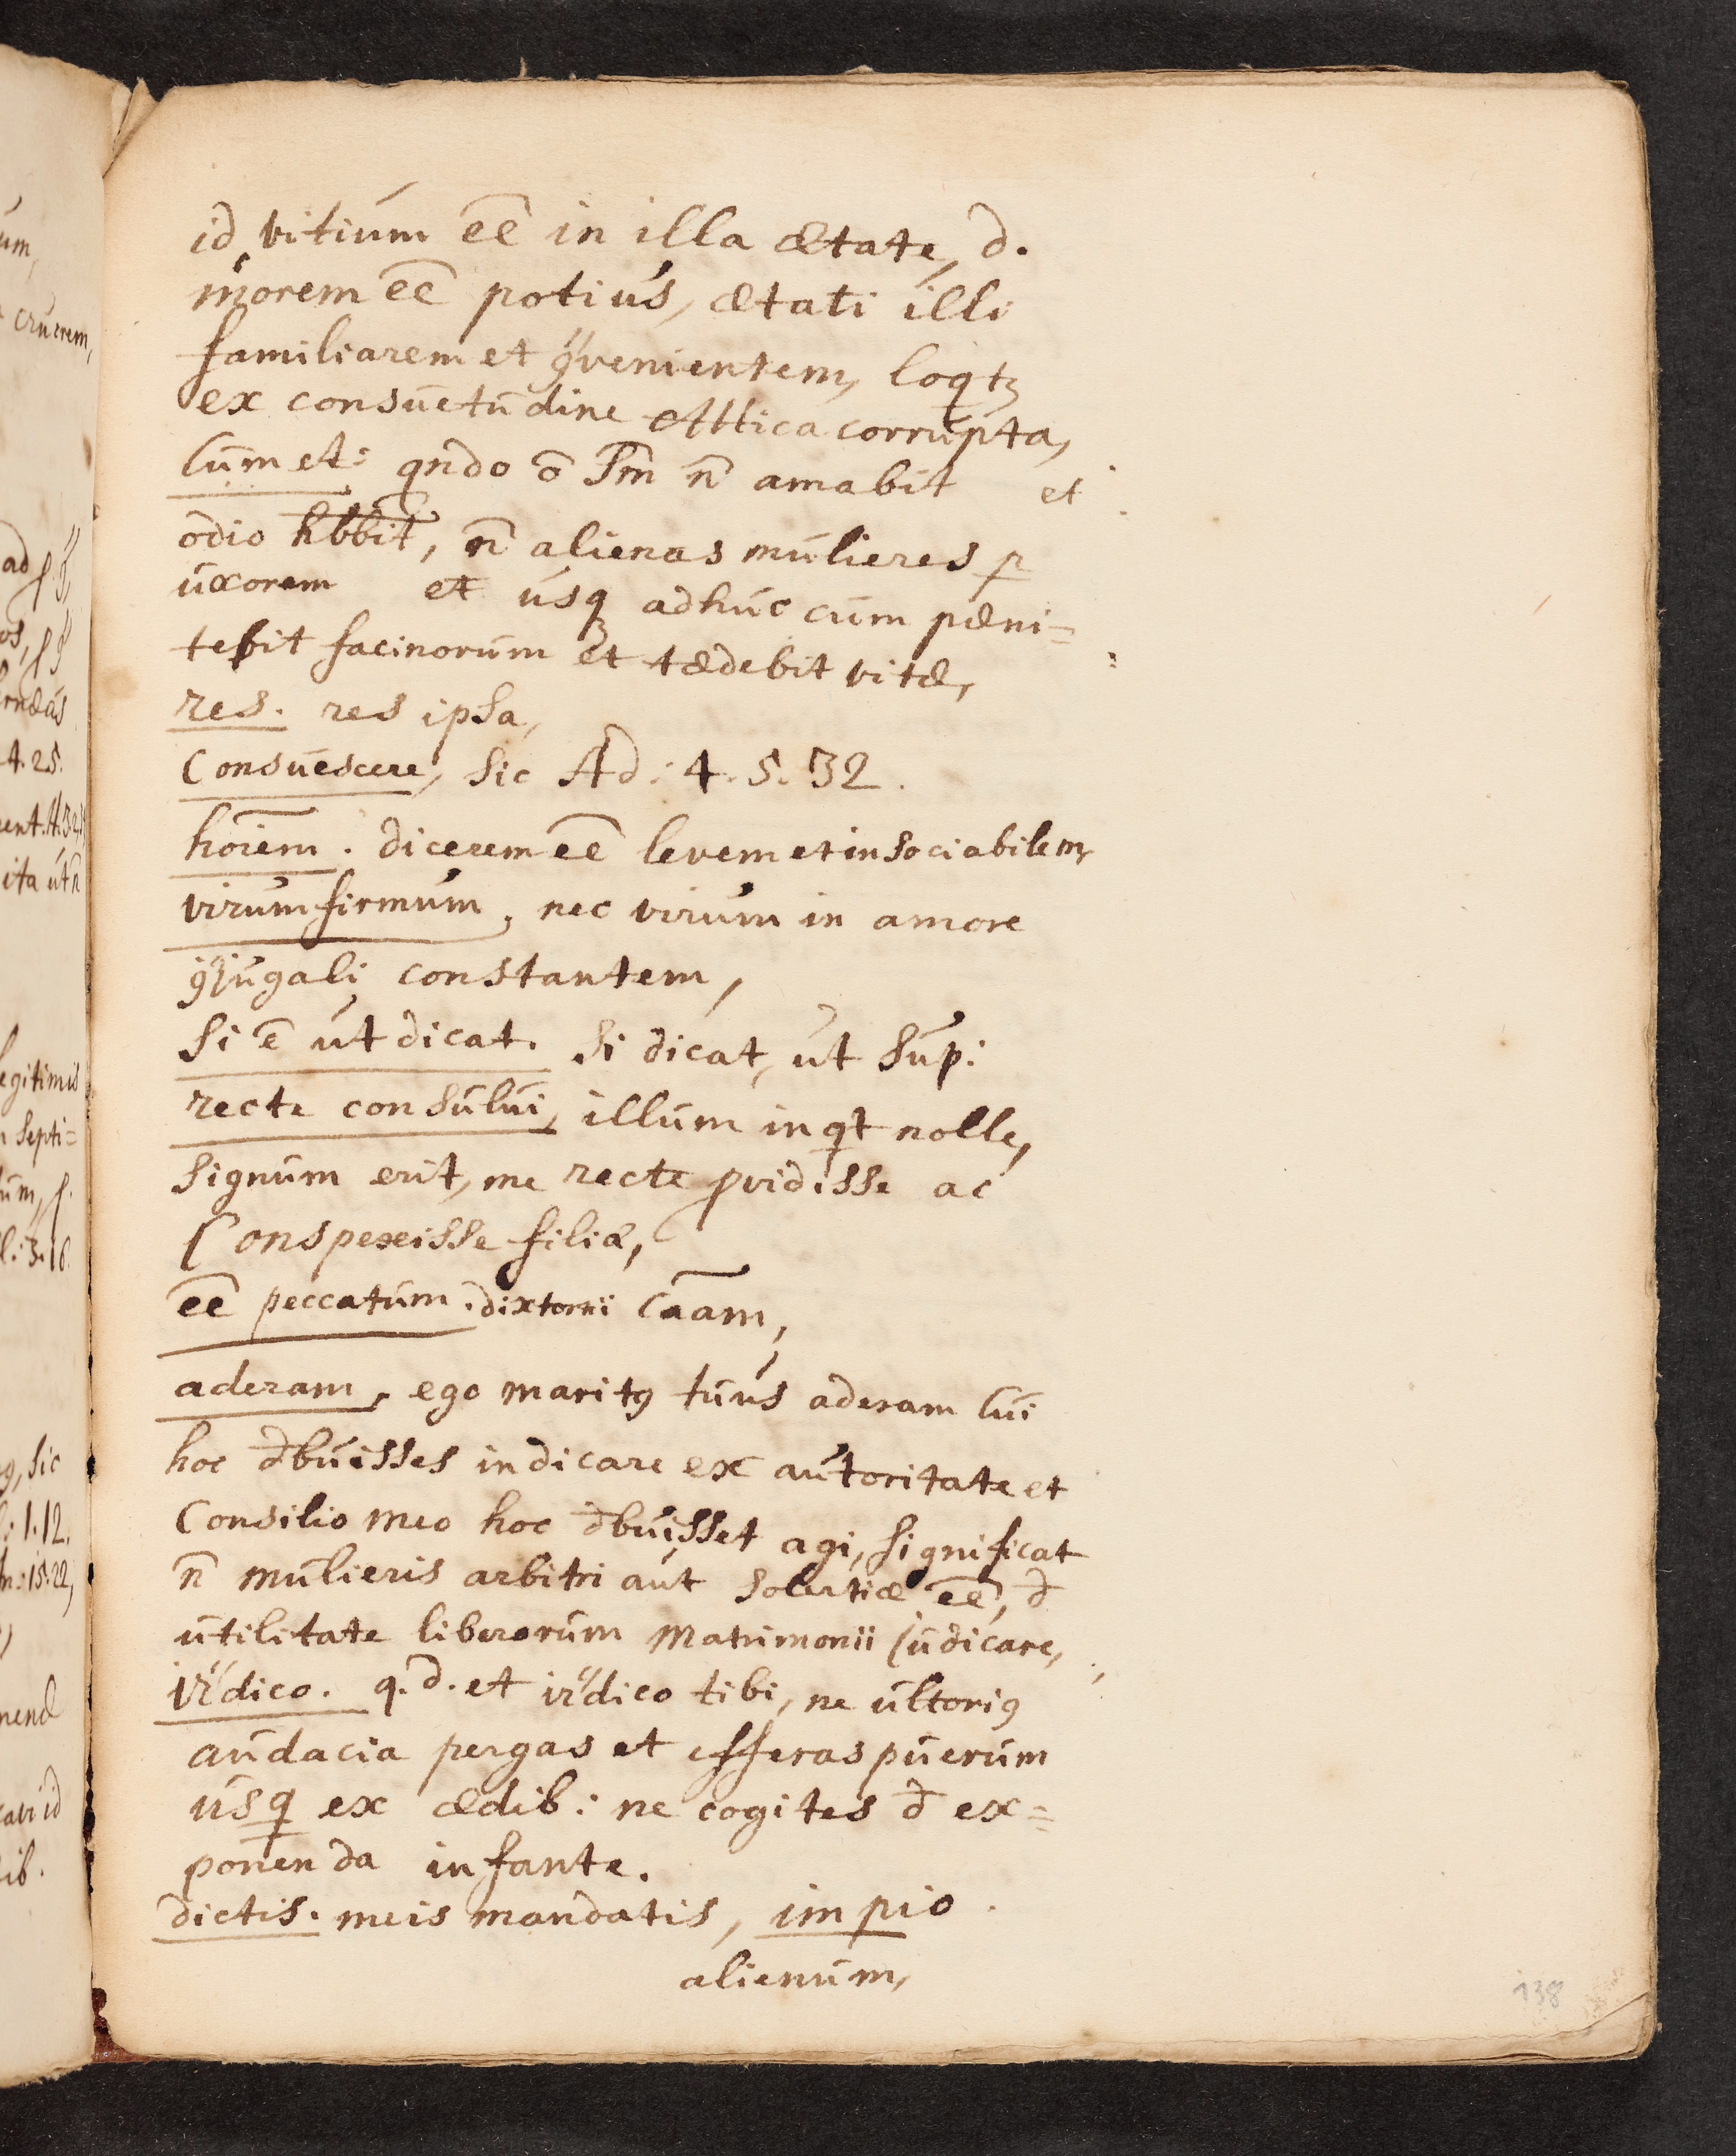 id vitium eē in illa ætate, d.
morem eē potius, ætati illi
familiarem et ꝯvenientem, loqtꝫ
ex consuetudine Attica corrupta,
Cum et: qndo ō m̄ n̄ amabit et
odio hbbit, n̄ alienas mulieres p
uxorem et usqꝫ adhuc cum pæni=
tebit facinorum et tædebit vitæ,
res. res ipsa,
Consuescere, sic Ad: 4. 5. 32.
hoīem. dicerem eē levem et insociabilem,
virum firmum, nec virum in amore
ꝯjugali constantem,
Si ē ut dicat. Si dicat, ut sup:
recte consului, illum inqt nolle,
signum erit, me recte ꝓvidisse ac
Conspexisse filiæ,
eē peccatum. Caam,
aderam, ego maritꝰ tuus aderam Cui
hoc dbuisses indicare ex autoritate et
Consilio meo hoc dbuisset agi, significat
n̄ mulieris arbitri aut solertiæ eē, d
utilitate liberorum Matrimonii judicare,
dico. q. d. et dico tibi, ne ulteriꝰ
audacia pergas et efferas puerum
usq ex ædib: ne cogites d ex=
ponenda infante.
dictis. meis mandatis, impio
alienum,
138